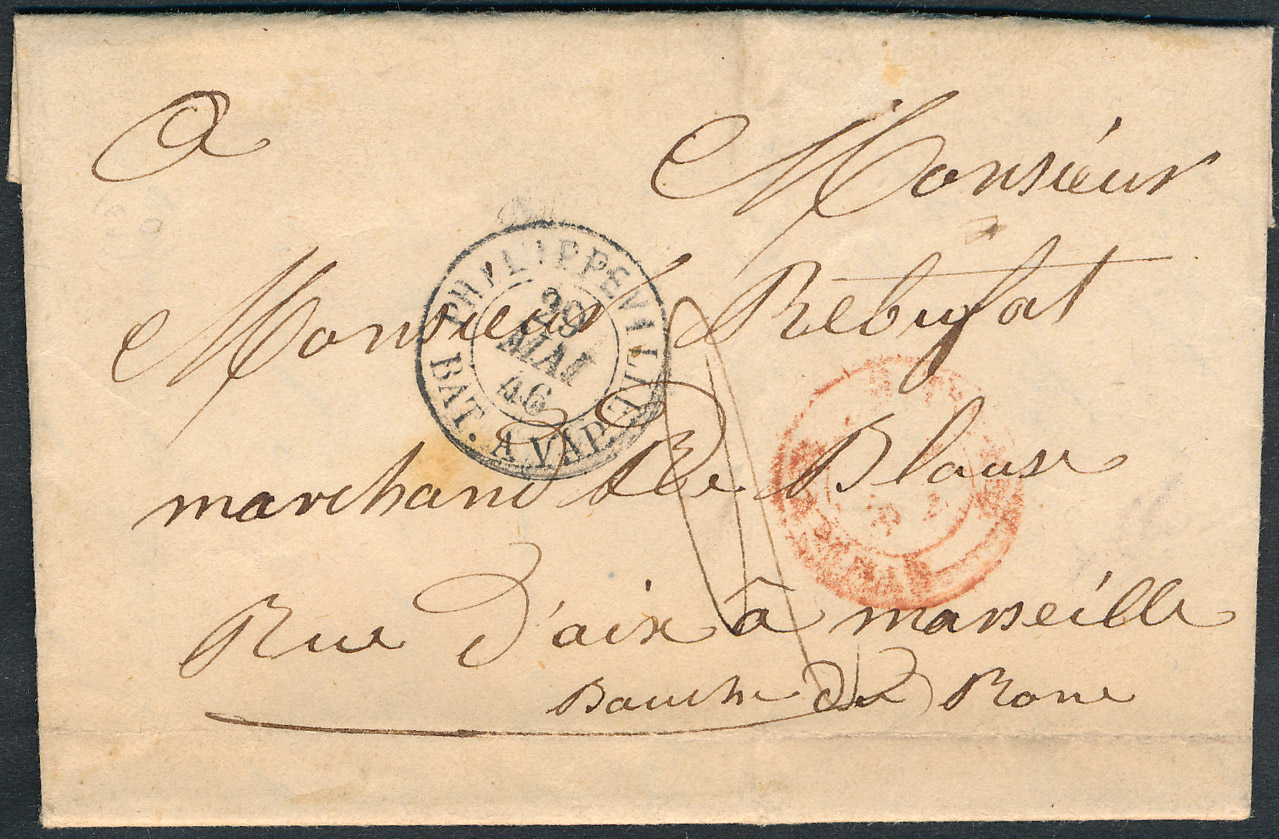 A
Monsieur
Monsieur Rebufat
marchand De Blause
Rue D'aix à marseille
Bouche du Rone
PHILIPPEVILLE
29
MAI
46
BAT. A VAP.